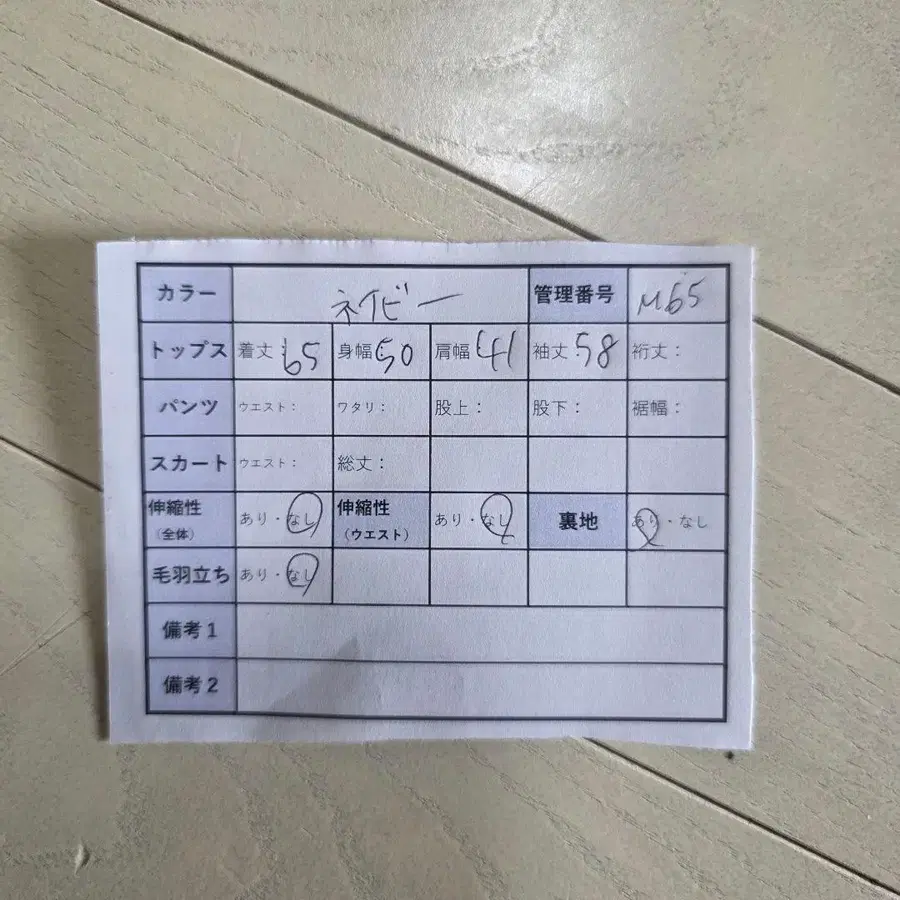 カラー ネイビー 管理番号 M65
トップス 着丈：65 身幅 50 肩幅 41 袖丈 58 裄丈：
パンツ ウエスト： ワタリ： 股上： 股下： 裾幅：
スカート ウエスト： 総丈：
伸縮性（全体） あり・なし 伸縮性（ウエスト） あり・なし 裏地 あり・なし
毛羽立ち あり・なし
備考1
備考2